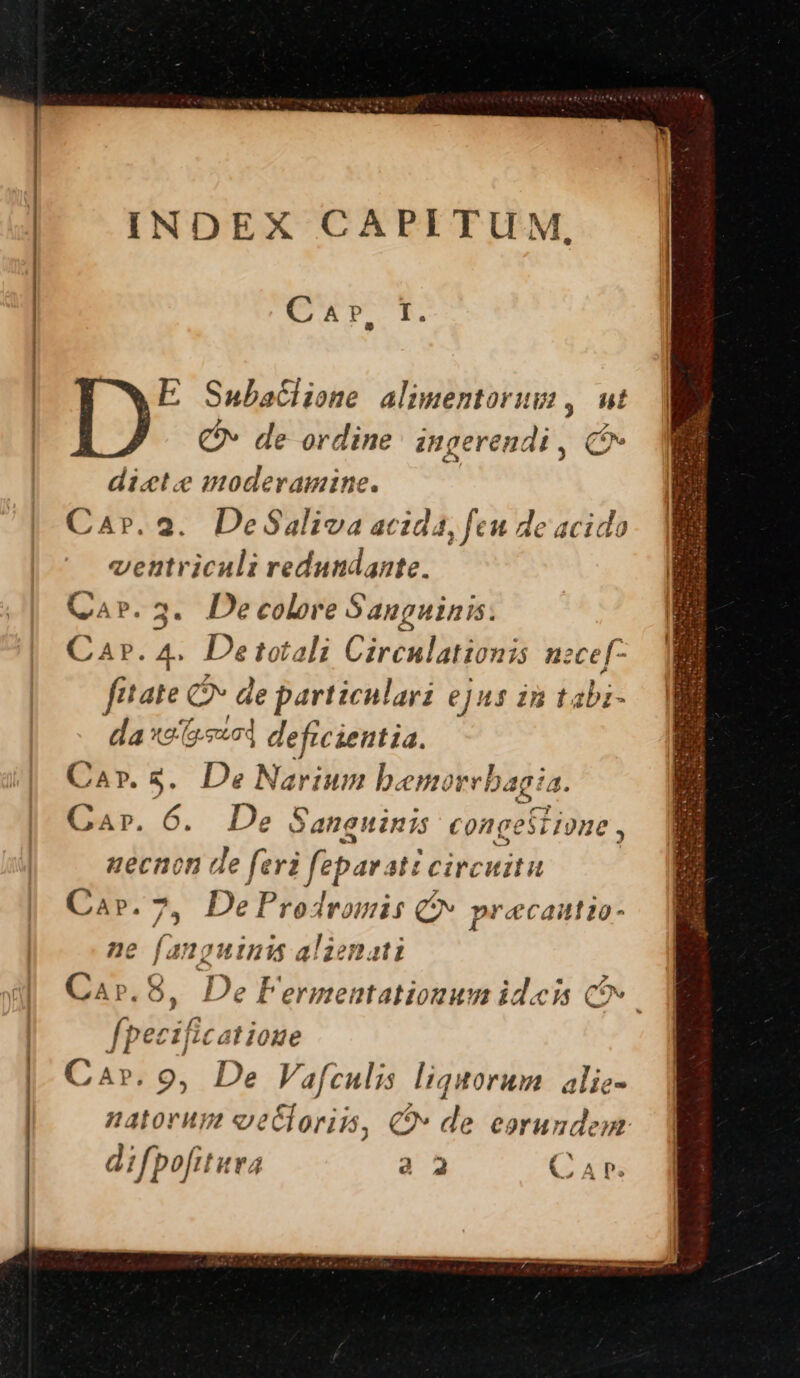 INDEX CAPITUM,
CAP, I.
DE Subactione alimentorum, ut
& de ordine ingerendi, &
diætæ moderamine.
CAP. 2. De Saliva acida, ſeu de acido
ventriculi redundante.
CAP. 3. De colore Sanguinis.
CAP. 4. De totali Circulationis neceſ-
ſitate & de particulari ejus in tabi-
da deficientia.
CAP. 5. De Narium hæmorrhagia.
CAP. 6. De Sanguinis congestione,
necnon de ſeri ſeparati circuitu
CAP. 7, De Prodromis & præcautio-
ne ſanguinis alienati
CAP. 8, De Fermentationum idæis &
ſpecificatione
CAP. 9, De Vaſculis liquorum alie-
natorum vectoriis, & de eorundem
diſpoſitura a 2 CAP.